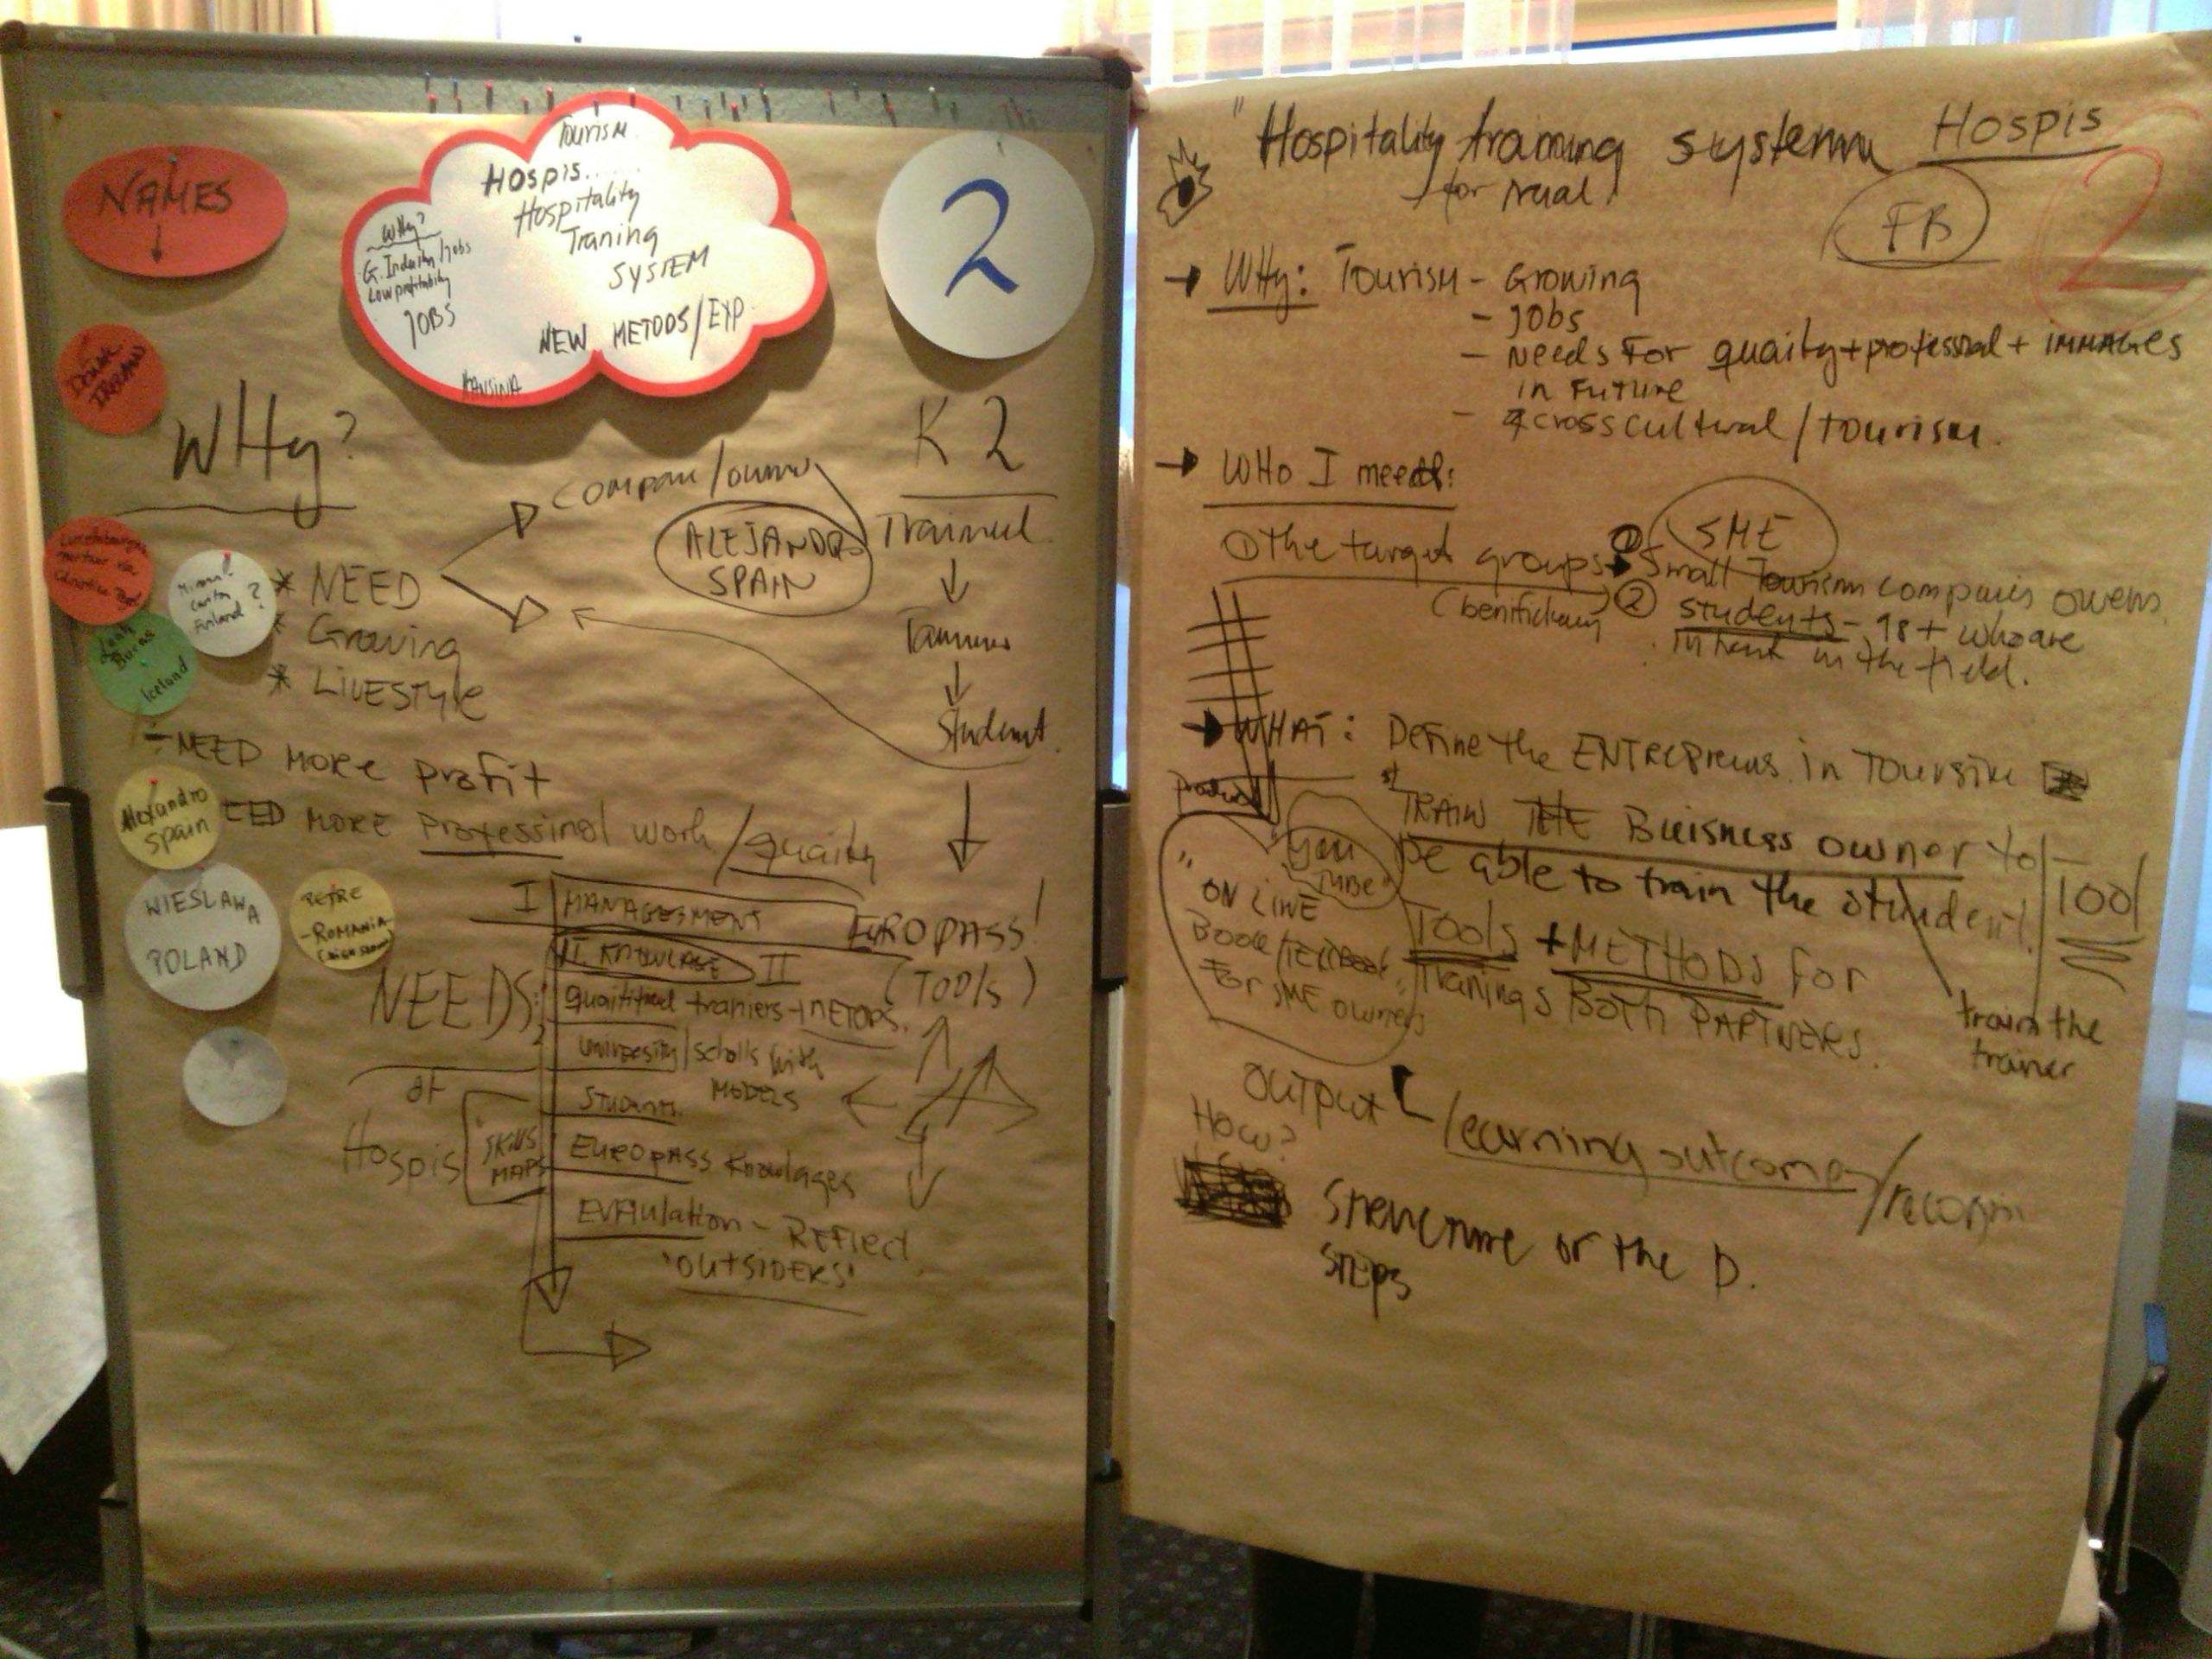 NAMES
Tourism
HOSPIS......
Hospitality
Traning
SYSTEM
NEW METODS/EXP.
WHy?
G. Industry/jobs
Low profitability
JOBS
2
WHy?
K2
Compani/ownner
ALEJANDRO
SPAIN
Trained
Student
* NEED
* Growing
* LIVESTYLE
Finland?
Burns
Iceland
- NEED MORE profit
NEED MORE Professinol work/quaity
Alexandro
spain
WIESLAWA
POLAND
PETRE
-ROMANIA-
I MANAGESMENT
II. KNOWLAGE II
EUROPASS!
(TOOLS)
NEEDS:
quaitified traniers + METODS.
university/scholls with
MODELS
Students.
OF
Hospis
SKILLS
MAPS
EUROPASS Knowlages
EVAULATION - REFLECT
'OUTSIDERS'
"Hospitality training system Hospis
for rural
FB
2
→ WHy: Tourism - Growing
- jobs
- needs For quaity + professinal + IMMAGES
in FUTURE
- crosscultural/tourism.
→ WHO I meet:
① The target groups
(benifickary)
SME
① Small Tourism companies owens
② students - 18+ who are
in the field.
→ WHAT: Define the ENTREPRENUS in Toursim
product
TRAIN THE Buisness owner to
be able to train the student.
TOOL
"you
TUBE"
"ON LINE
BOOK/TEXTBOOK"
For SME owners
Tools + METHODS for
Tranings Both PARTNERS.
train the
trainer
OUTPUT
learning outcome/
How?
STRUCTURE OF THE D.
STEPS